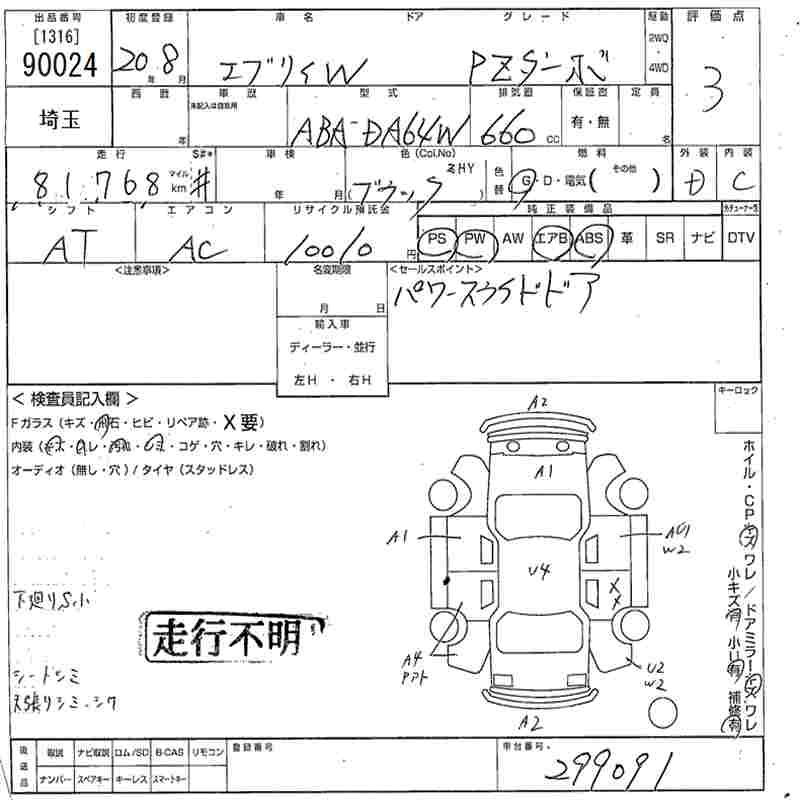 出品番号 初度登録 車名 ドア グレード 駆動 評価点
[1316]
90024
20年 8月 エブリィW PZターボ 2WD 4WD 3
埼玉
西暦 車歴 型式 排気量 保証書 定員
未記入は自家用
年 ABA-DA64W 660 cc 有・無 名
走行 S#* 車検 色(Col.No) 色替 燃料 外装 内装
81,768 マイル km # 年 月 (ブラック ZHY) G・D・電気(その他 ) D C
シフト エアコン リサイクル預託金 純正装備品
AT AC 10010円 PS PW AW エアB ABS 革 SR ナビ DTV
<注意事項> 名変期限 <セールスポイント>
月 日
パワースライドドア
輸入車
ディーラー・並行
左H ・ 右H
キーロック
< 検査員記入欄 >
Fガラス(キズ・飛石・ヒビ・リペア跡・X要)
内装(キズ・スレ・汚れ・シミ・コゲ・穴・キレ・破れ・割れ)
オーディオ(無し・穴)/タイヤ(スタッドレス)
下廻りS.小
走行不明
シートシミ
天張りシミ・シワ
A2
A1
A1
W2
U4
X X
A4
U2
W2
A2
ホイル・CPキズ ワレ/ドアミラーキズ・ワレ
小キズ有 小凹有 補修有
後送品 取説 ナビ取説 ロム/SD B-CAS リモコン 登録番号 車台番号
ナンバー スペアキー キーレス スマートキー
299091